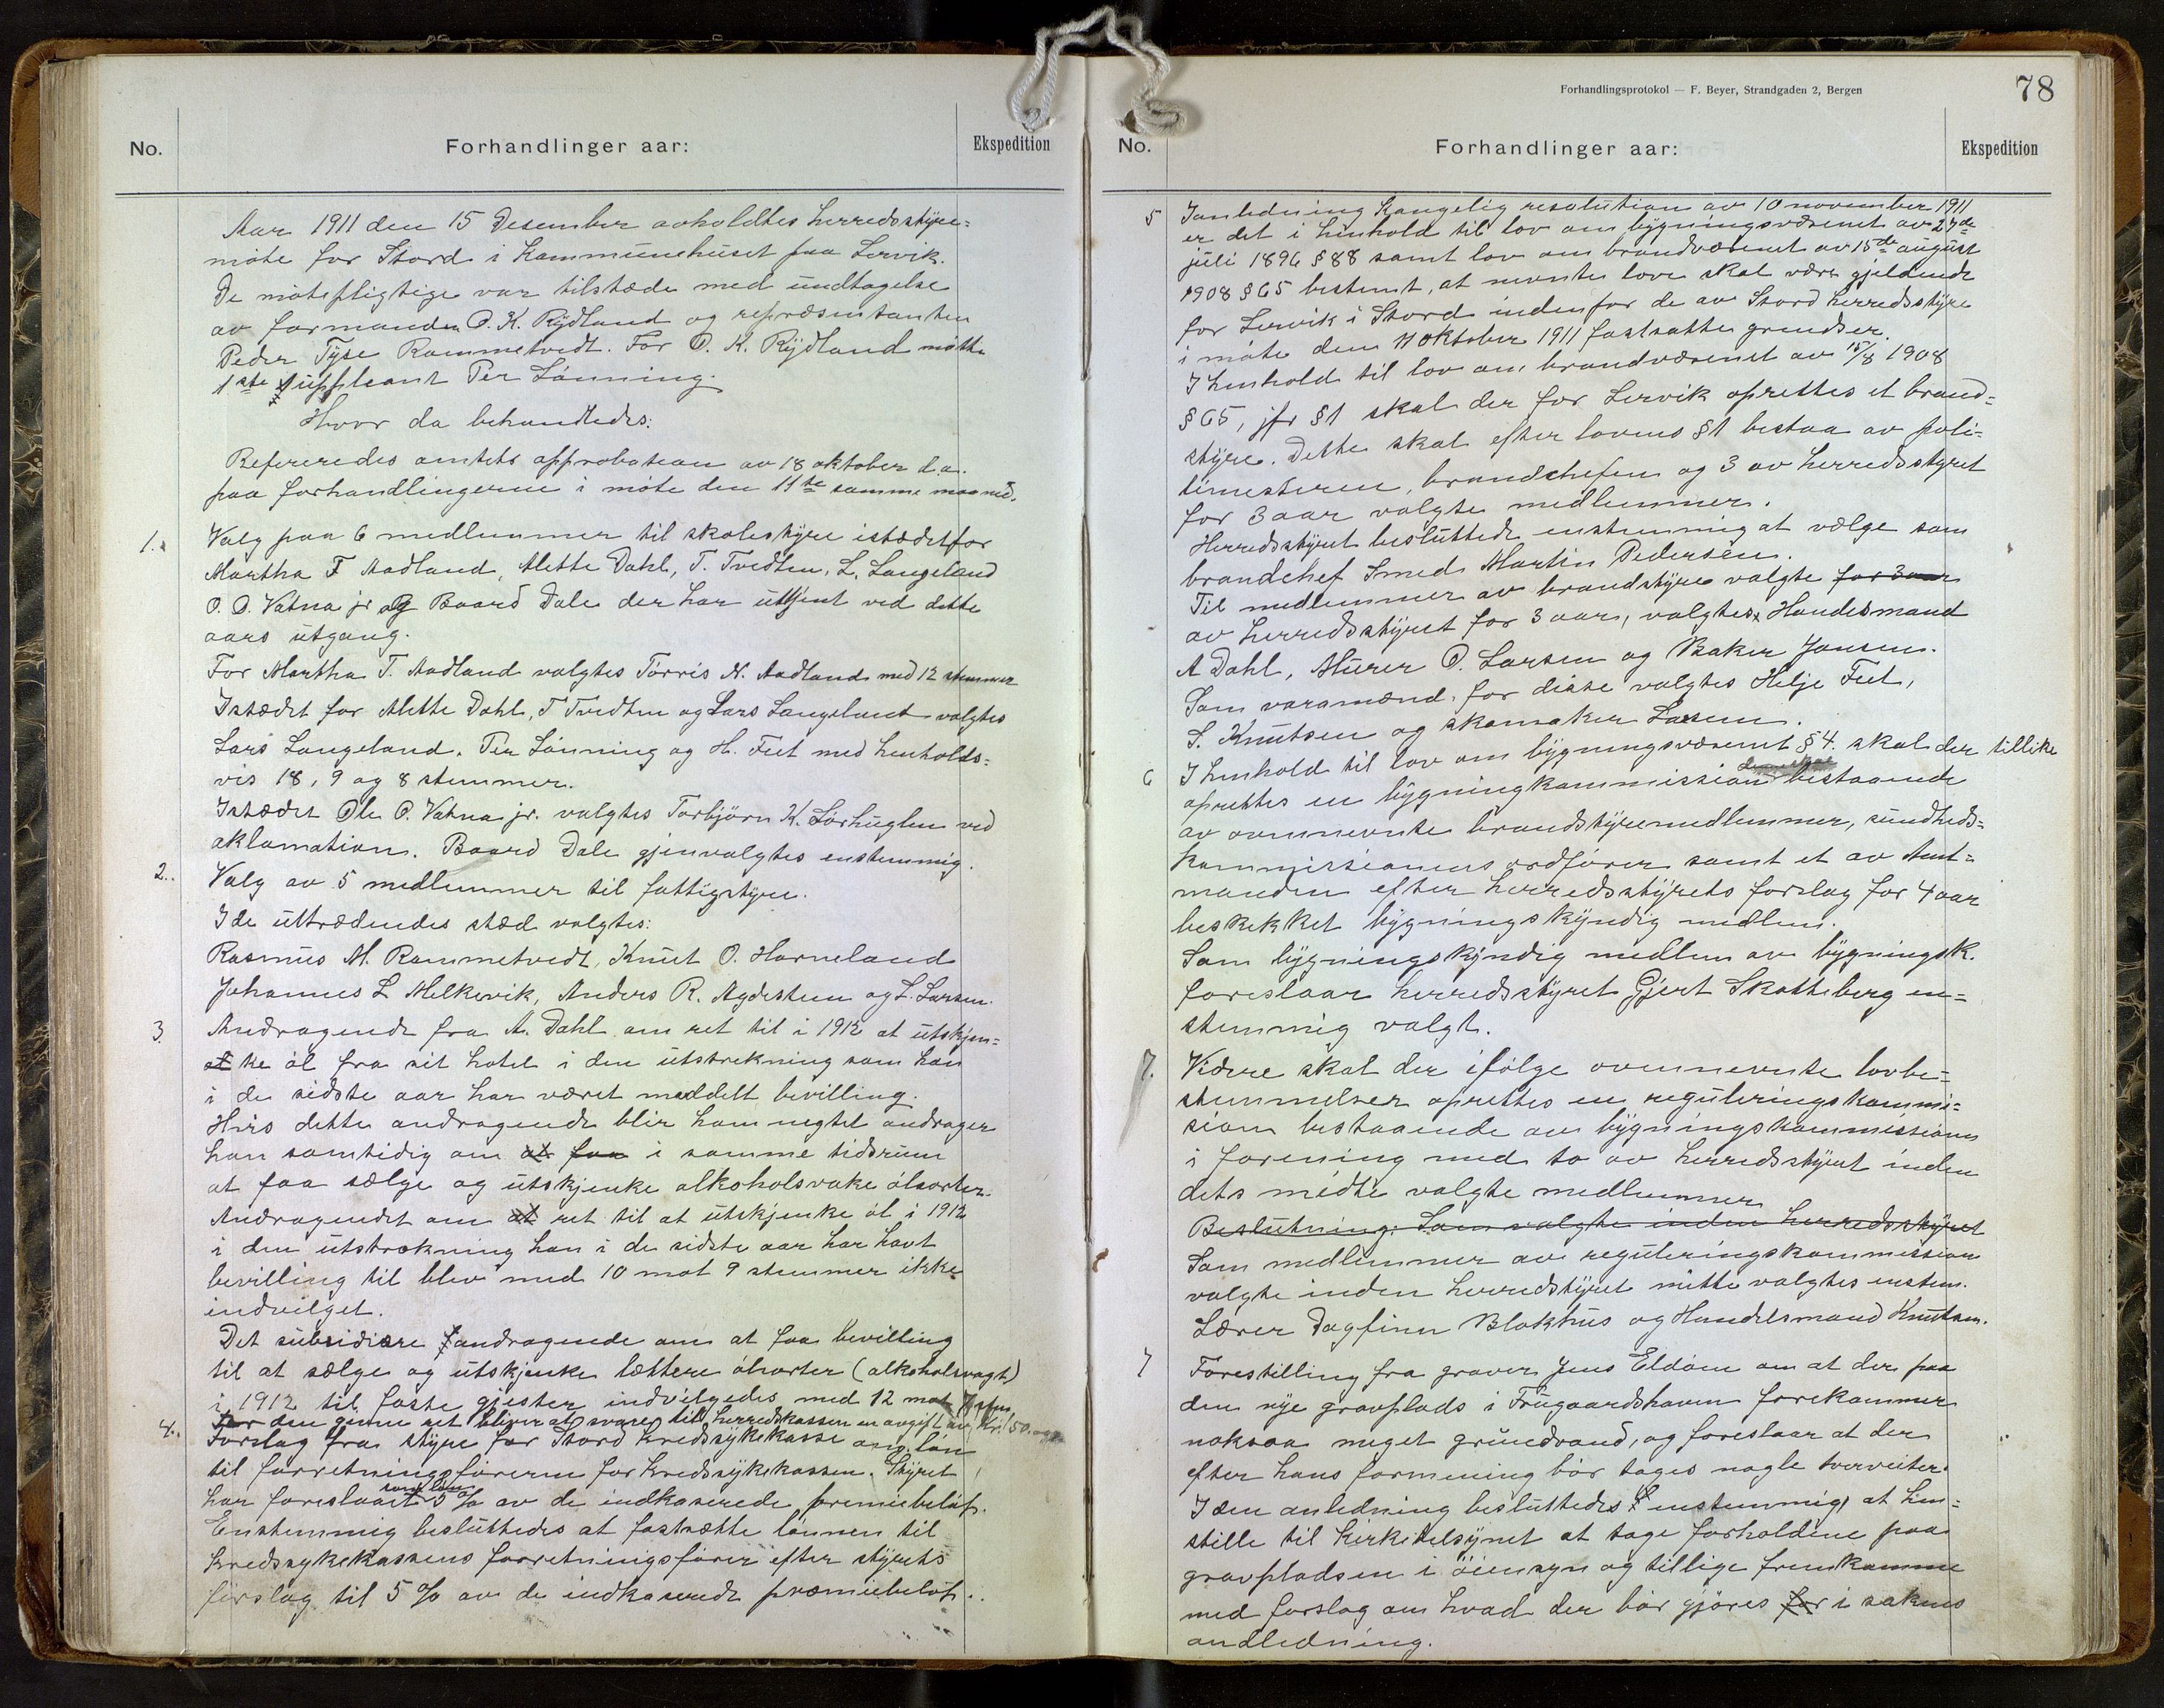 No.
Forhandlinger aar:
Ekspedition
Aar 1911 den 15 Desember avholdtes herredsstyre=
møte for Stord i Kommunehuset paa Lervik.
De møtepligtige var tilstæde med undtagelse
av formanden O. K. Rydland og repræsentanten
Peder Tyse Rommetvedt. For O. K. Rydland møtte
1ste suppleant Per Lønning.
Hvor da behandledes:
Refereredes amtets approbation av 18 oktober d.a.
paa forhandlingerne i møte den 11te samme maaned.
1. Valg paa 6 medlemmer til skolestyre istædetfor
Martha T Aadland, Mette Dahl, T. Tvedten, L. Langeland
O. O. Vatna jr og Baard Dale der har uttjent ved dette
aars utgang.
For Martha T. Aadland valgtes Tørris N. Aadland med 12 stemmer
Istædet for Mette Dahl, T Tvedten og Lars Langeland valgtes
Lars Langeland, Per Lønning og H. Feet med henholds=
vis 18, 9 og 8 stemmer.
Istædet Ole O. Vatna jr. valgtes Torbjørn K. Sørhuglen ved
aklamation. Baard Dale gjenvalgtes enstemmig.
2. Valg av 5 medlemmer til fattigstyre.
I de uttrædendes stæd valgtes:
Rasmus M. Rommetvedt, Knut O. Horneland
Johannes L Melkevik, Anders R. Agdestein og L. Larsen.
3. Andragende fra A. Dahl om ret til i 1912 at utskjen=
at ke øl fra sit hotel i den utstrekning som han
i de sidste aar har været meddelt bevilling.
Hvis dette andragende blir ham negtet andrager
han samtidig om at faa i samme tidsrum
at faa sælge og utskjenke alkoholsvake ølsorter.
Andragendet om at ret til at utskjenke øl i 1912
i den utstrækning han i de sidste aar har havt
bevilling til blev med 10 mot 9 stemmer ikke
indvilget.
Det subsidiære andragende om at faa bevilling
til at sælge og utskjenke lættere ølsorter (alkoholsvagt)
i 1912 til faste gjester indvilgedes med 12 mot 7 stem.
For den gevne ret bliver at svare til herredskassen en avgift av Kr. 50.
4. Forslag fra styre for Stord kredssykekasse om løn
til forretningsføreren for kredssykekassen. Styret
har foreslaait som løn 5 % av de indkaserede premiebeløp.
Enstemmig besluttedes at fastsætte lønnen til
kredssykekassens forretningsfører efter styrets
forslag til 5 % av de indkaserede præmiebeløp.
Forhandlingsprotokol — F. Beyer, Strandgaden 2, Bergen
78
No.
Forhandlinger aar:
Ekspedition
5 I anledning Kongelig resolution av 10 november 1911
er det i henhold til lov om bygningsvæsenet av 27de
juli 1896 § 88 samt lov om brandvæsenet av 15de august
1908 § 65 bestemt, at nevnte love skal være gjeldende
for Lervik i Stord indenfor de av Stord herredsstyre
i møte den 11 oktober 1911 fastsatte grendser.
I henhold til lov om brandvæsenet av 15/8 1908
§ 65, jfr § 1 skal der for Lervik oprettes et brand=
styre. Dette skal efter lovens § 1 bestaa av poli=
timesteren, brandchefen og 3 av herredsstyret
for 3 aar valgte medlemmer.
Herredsstyret besluttede enstemmig at vælge som
brandchef Smed Martin Pedersen.
Til medlemmer av brandstyre valgte for 3 aar
av herredsstyret for 3 aar, valgtes, Handelsmand
A Dahl, Murer O. Larsen og Baker Jansen.
Som varamænd for disse valgtes Helje Feet,
S. Knutsen og skomaker Lassen.
6 I henhold til lov om bygningsvæsenet § 4. skal der tillike
oprettes en bygningkommission bestaaende
av ovennevnte brandstyremedlemmer, sundheds=
kommissionens ordfører samt et av Amt=
manden efter herredsstyrets forslag for 4 aar
beskikket bygningskyndig medlem.
Som bygningskyndig medlem av bygningsk.
foreslaar herredsstyret Gjert Skotteberg en=
stemmig valgt.
7. Videre skal der ifølge ovennevnte lovbe=
stemmelser oprettes en reguleringskommi=
sion bestaaende av bygningskommissionen
i forening med to av herredsstyret inden
dets midte valgte medlemmer
Beslutning: Som valgte inden herredsstyret
Som medlemmer av reguleringskommission
valgte inden herredsstyret mitte valgtes enstem.
Lærer Dagfinn Blokhus og Handelsmand Knutsen.
7 Forestilling fra graver Jens Eldøen om at der paa
den nye gravplads i Frugaardshaven forekommer
noksaa meget grundvand, og foreslaar at der
efter hans formening bør tages nogle tverveiter.
I den anledning besluttedes enstemmig at hen=
stille til kirketilsynet at tage forholdene paa
gravpladsen i øiensyn og tillige fremkomme
med forslag om hvad der bør gjøres for i sakens
andledning.